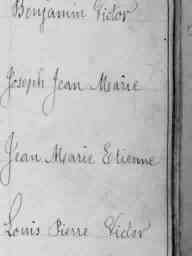 Benjamin Victor
Joseph Jean Marie
Jean Marie Etienne
Louis Pierre Victor